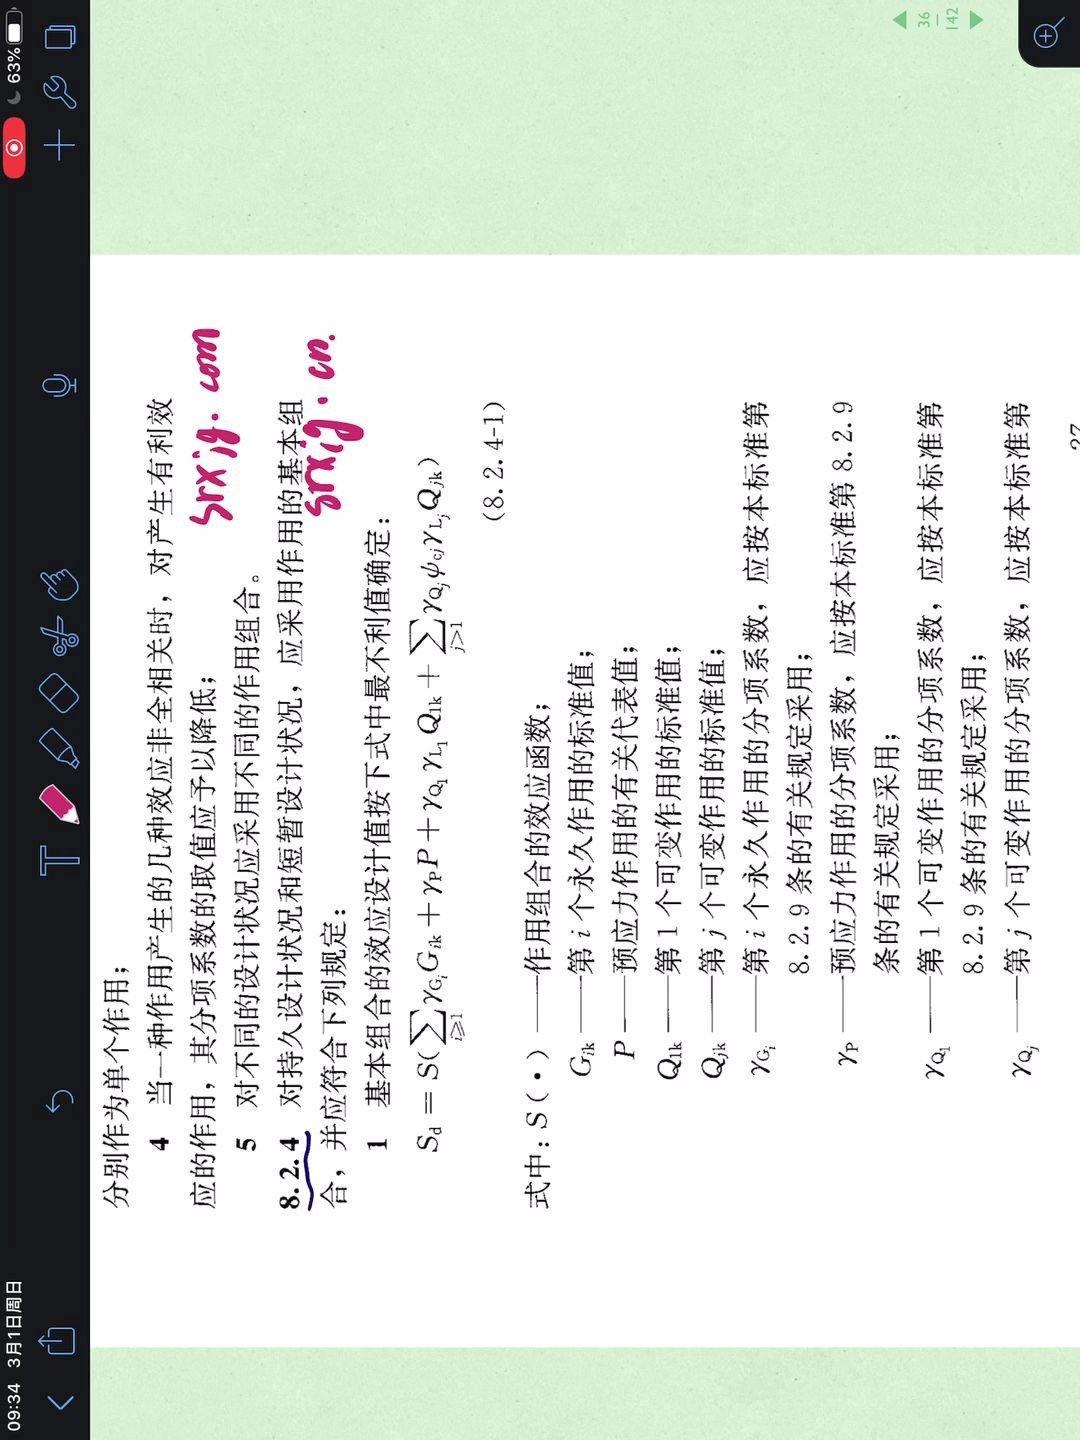 09:34 3月1日周日
63%
36
142
分别作为单个作用；
4 当一种作用产生的几种效应非全相关时，对产生有利效
应的作用，其分项系数的取值应予以降低；
srxjg.com
5 对不同的设计状况应采用不同的作用组合。
8.2.4 对持久设计状况和短暂设计状况，应采用作用的基本组
srxjg.cn.
合，并应符合下列规定：
1 基本组合的效应设计值按下式中最不利值确定：
S_d = S(∑_{i≥1} γ_{G_i} G_{ik} + γ_P P + γ_{Q_1} γ_{L_1} Q_{1k} + ∑_{j>1} γ_{Q_j} ψ_{cj} γ_{L_j} Q_{jk})
(8.2.4-1)
式中：S(•)——作用组合的效应函数；
G_{ik}——第 i 个永久作用的标准值；
P——预应力作用的有关代表值；
Q_{1k}——第 1 个可变作用的标准值；
Q_{jk}——第 j 个可变作用的标准值；
γ_{G_i}——第 i 个永久作用的分项系数，应按本标准第
8.2.9 条的有关规定采用；
γ_P——预应力作用的分项系数，应按本标准第 8.2.9
条的有关规定采用；
γ_{Q_1}——第 1 个可变作用的分项系数，应按本标准第
8.2.9 条的有关规定采用；
γ_{Q_j}——第 j 个可变作用的分项系数，应按本标准第